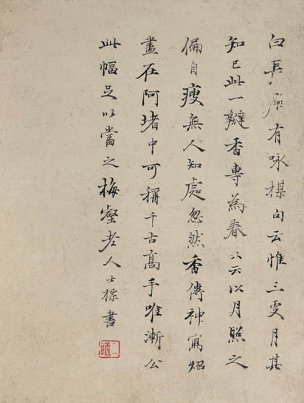 白君廣有咏楳句云惟三更月其
知己此一瓣香專為春又云以月照之
偏自瘦無人知處忽然香傳神寫炤
盡在阿堵中可稱千古高手唯漸公
此幅足以當之梅壑老人士標書